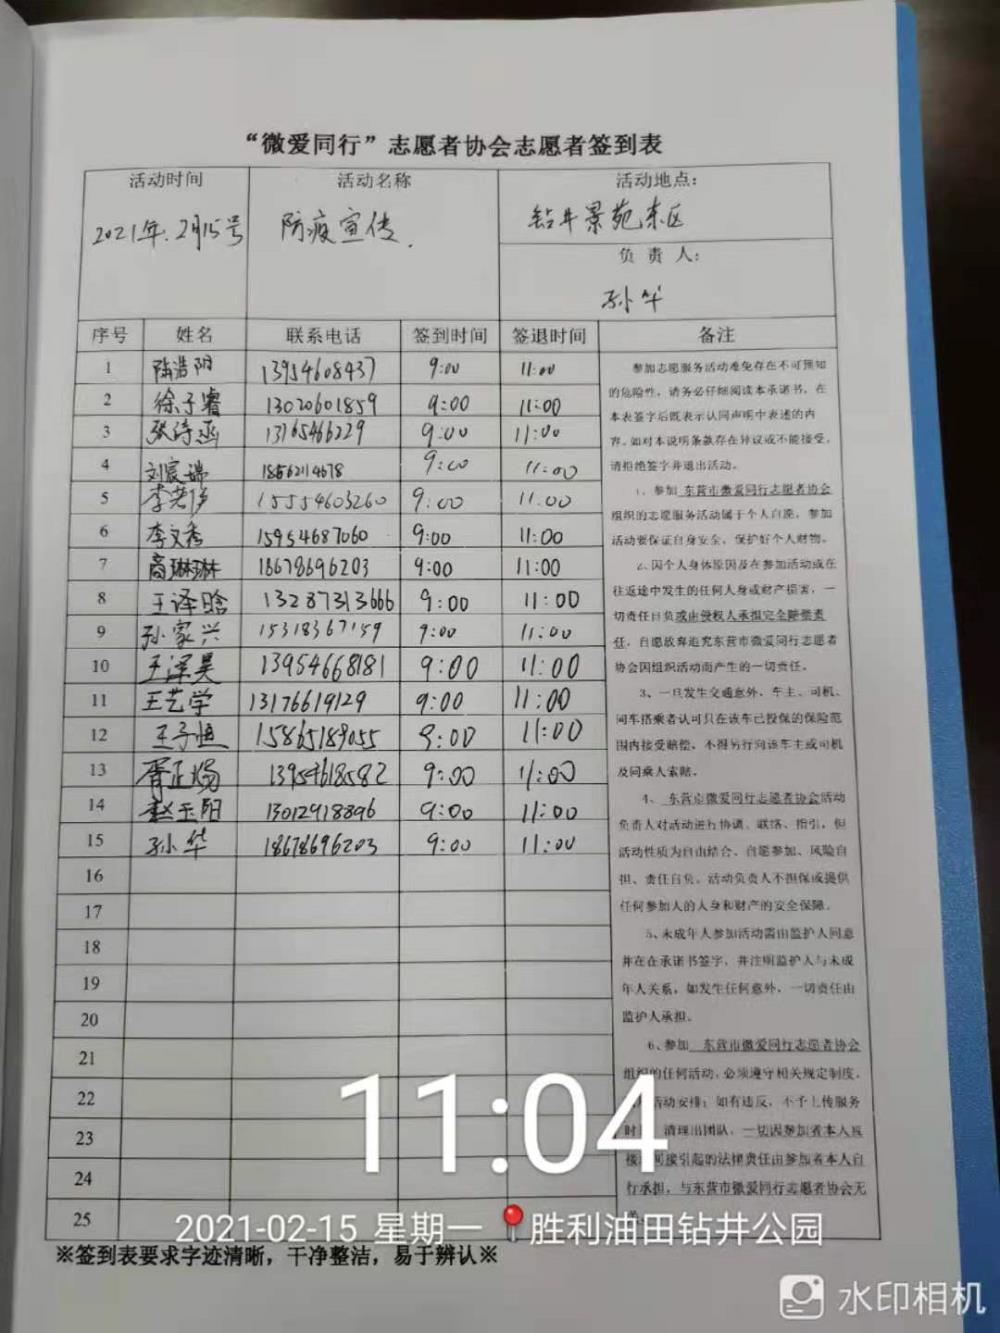 “微爱同行”志愿者协会志愿者签到表
活动时间 活动名称 活动地点：
2021年.2月15号 防疫宣传. 钻井景苑东区
负责人：
孙华
序号 姓名 联系电话 签到时间 签退时间 备注
1 陆浩阳 13954608437 9:00 11:00
2 徐子睿 13020601859 9:00 11:00
3 张诗函 13165466229 9:00 11:00
4 刘宸瑞 18562114678 9:00 11:00
5 15554603260 9:00 11:00
6 李文秀 15954687060 9:00 11:00
7 高琳琳 18678696203 9:00 11:00
8 王译晗 13287313666 9:00 11:00
9 孙家兴 15318367159 9:00 11:00
10 王泽昊 13954668181 9:00 11:00
11 王艺学 13176619129 9:00 11:00
12 王子恒 15865189055 9:00 11:00
13 胥正炀 13954618582 9:00 11:00
14 赵玉阳 13012918896 9:00 11:00
15 孙华 18678696203 9:00 11:00
16
17
18
19
20
21
22
23
24
25
参加志愿服务活动难免存在不可预知
的危险性，请务必仔细阅读本承诺书，在
本表签字后既表示认同声明中表述的内
容。如对本说明条款存在异议或不能接受，
请拒绝签字并退出活动。
1、参加 东营市微爱同行志愿者协会
组织的志愿服务活动属于个人自愿，参加
活动要保证自身安全，保护好个人财物。
2、因个人身体原因及在参加活动或在
往返途中发生的任何人身或财产损害，一
切责任自负或由侵权人承担完全赔偿责
任，自愿放弃追究东营市微爱同行志愿者
协会因组织活动而产生的一切责任。
3、一旦发生交通意外，车主、司机、
同车搭乘者认可只在该车已投保的保险范
围内接受赔偿，不得另行向该车主或司机
及同乘人索赔。
4、东营市微爱同行志愿者协会活动
负责人对活动进行协调、联络、指引，但
活动性质为自由结合、自愿参加、风险自
担、责任自负。活动负责人不担保或提供
任何参加人的人身和财产的安全保障。
5、未成年人参加活动需由监护人同意
并在在承诺书签字，并注明监护人与未成
年人关系，如发生任何意外，一切责任由
监护人承担。
6、参加 东营市微爱同行志愿者协会
组织的任何活动，必须遵守相关规定制度，
活动安排；如有违反，不予上传服务
时 清理出团队，一切因参加者本人直
接 间接引起的法律责任由参加者本人自
行承担，与东营市微爱同行志愿者协会无
11:04
2021-02-15 星期一 胜利油田钻井公园
※签到表要求字迹清晰，干净整洁，易于辨认※
水印相机